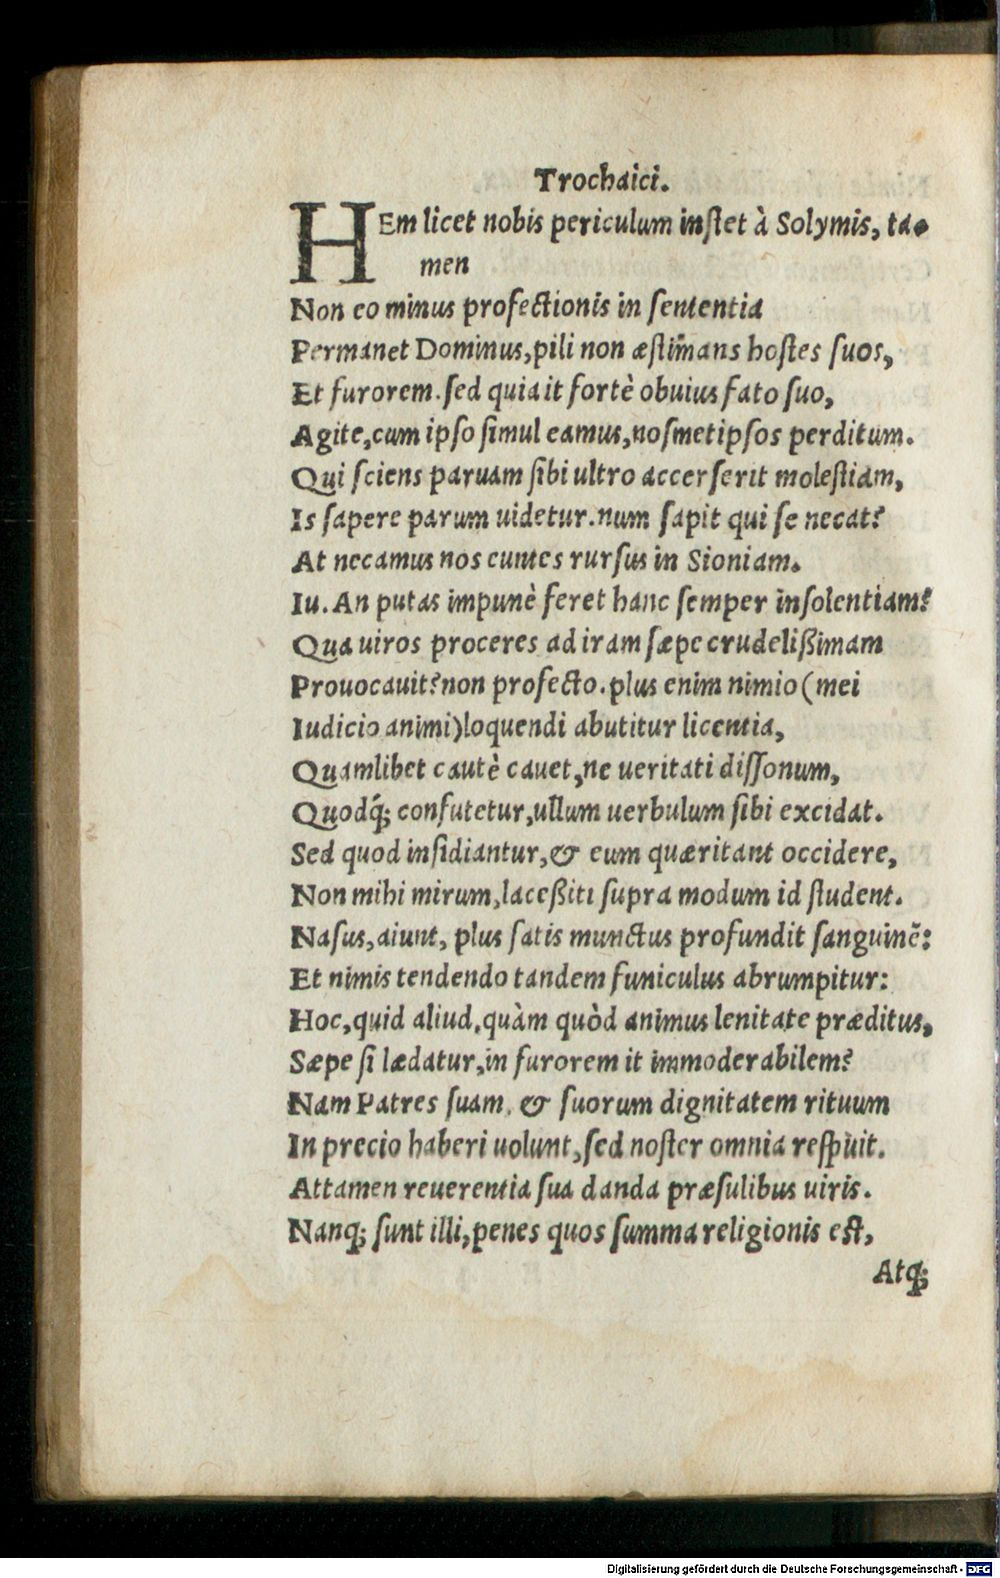 Trochaici.
HEm licet nobis periculum inſtet à Solymis, ta-
men
Non eo minus profectionis in ſententia
Permanet Dominus, pili non æſtimans hoſtes ſuos,
Et furorem. ſed quia it fortè obuius fato ſuo,
Agite, cum ipſo ſimul eamus, noſmetipſos perditum.
Qui ſciens paruam ſibi ultro accerſerit moleſtiam,
Is ſapere parum uidetur. num ſapit qui ſe necat?
At necamus nos euntes rurſus in Sioniam.
Iu. An putas impunè feret hanc ſemper inſolentiam?
Qua uiros proceres ad iram ſæpe crudelißimam
Prouocauit? non profecto. plus enim nimio (mei
Iudicio animi) loquendi abutitur licentia,
Quamlibet cautè cauet, ne ueritati diſſonum,
Quodq́; confutetur, ullum uerbulum ſibi excidat.
Sed quod inſidiantur, & eum quæritant occidere,
Non mihi mirum, laceßiti ſupra modum id ſtudent.
Naſus, aiunt, plus ſatis munctus profundit ſanguinẽ:
Et nimis tendendo tandem funiculus abrumpitur:
Hoc, quid aliud, quàm quòd animus lenitate præditus,
Sæpe ſi lædatur, in furorem it immoderabilem?
Nam Patres ſuam, & ſuorum dignitatem rituum
In precio haberi uolunt, ſed noſter omnia reſpuit.
Attamen reuerentia ſua danda præſulibus uiris.
Nanq; ſunt illi, penes quos ſumma religionis eſt,
Atq;
Digitalisierung gefördert durch die Deutsche Forschungsgemeinschaft - DFG